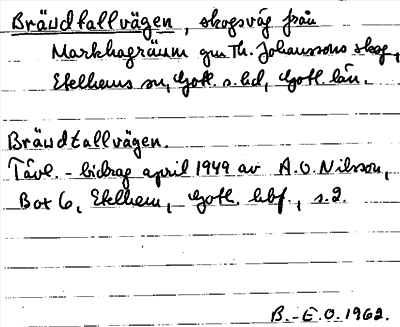 Brändtallvägen, skogsväg från
Markhagräum gm Th. Johanssons skog,
Etelhems sn, Gotl. s. hd, Gotl. län.
Brändtallvägen.
Tävl.-bidrag april 1949 av A.O. Nilsson,
Box 6, Etelhem, Gotl. hbf., s.2.
B.-E.O. 1962.